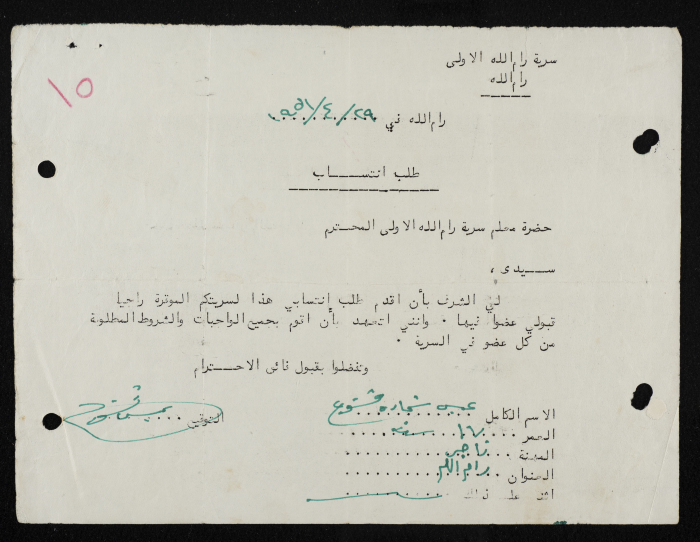 سرية رام الله الاولى
رام الله
١٥
رام الله في ٢٩/٤/١٩٥٦
طلب انتســـاب
حضرة معلم سرية رام الله الاولى المحــترم
ســيدى ،
لي الشرف بأن اقدم طلب إنتسابي هذا لسريتكم الموقرة راجيا
قبولي عضوا فيها . وانني اتعهد بأن اقوم بجميع الواجبات والشروط المطلوبة
من كل عضو في السرية .
وتفضلوا بقبول فائق الاحــترام
الاسم الكامل عيسى شحاده
التوقيع
العمر سنه
المهنة تاجر
العنوان رام الله